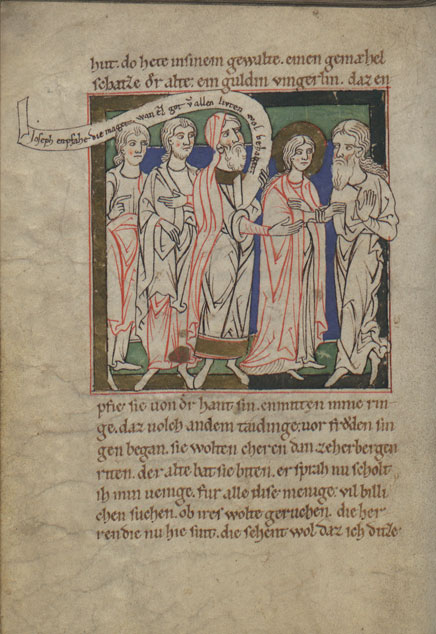 hut. do hete in sinem gewalte. einen gemæhel
schatze d̾r alte: ein guldin vingerlin. daz en
Joseph enpfahe die magem wan
got allen livten wol behaget
pfie sie von d̾r haut sin. enmitten inme rin
ge. daz volch an dem taidinge; vor frŏden sin
gen began. sie wolten cheren dan ze herbergen
riten. der alte bat sie biten. er sprah nu scholt
ih min wenige. fur alle dise menige; vil billi
chen suchen. ob ir es wolte geruchen. die her
ren die nu hie sint. die sehent wol daz ich ditze